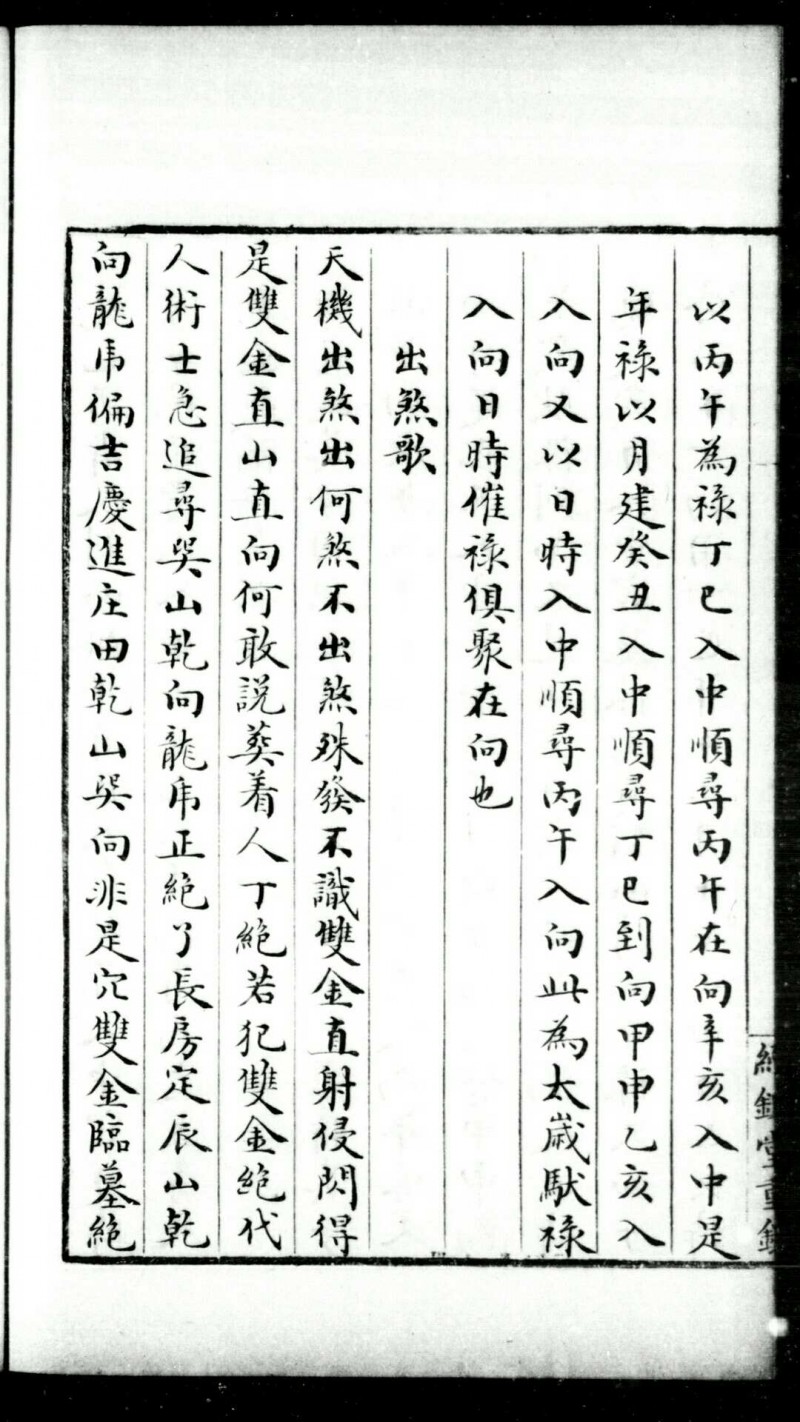 以丙午為祿丁巳入中順尋丙午在向辛亥入中是
年祿以月建癸丑入中順尋丁巳到向甲申乙亥入
入向又以日時入中順尋丙午入向此為太歲馱祿
入向日時催祿俱聚在向也
出煞歌
天機出煞出何煞不出煞殊發不識雙金直射侵閃得
是雙金直山直向何敢説葵着人丁絕若犯雙金絕代
人術士急追尋巽山乾向龍虎正絕了長房定辰山乾
向龍虎偏吉慶進庄田乾山巽向非是穴雙金臨墓絕
經鉏堂重